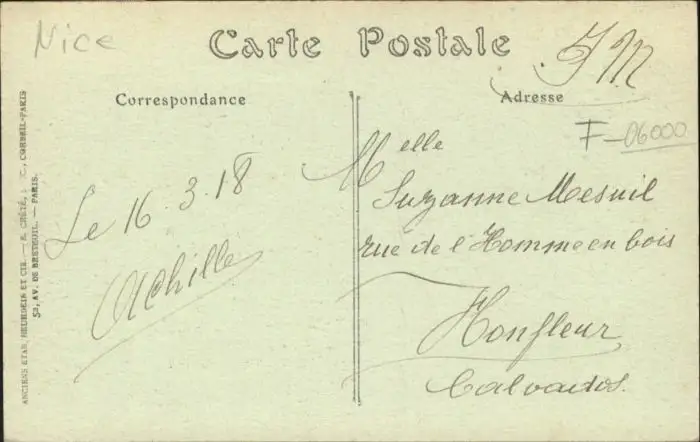 Nice
Carte Postale
FM
Correspondance
Adresse
F-06000
Le 16.3.18
Achille
Melle
Suzanne Mesnil
rue de l'Homme en bois
Honfleur
Calvados.
ANCIENS ETAB. NEURDEIN ET CIE. — E. CRÉTÉ, CORBEIL-PARIS
52, AV. DE BRETEUIL. — PARIS.